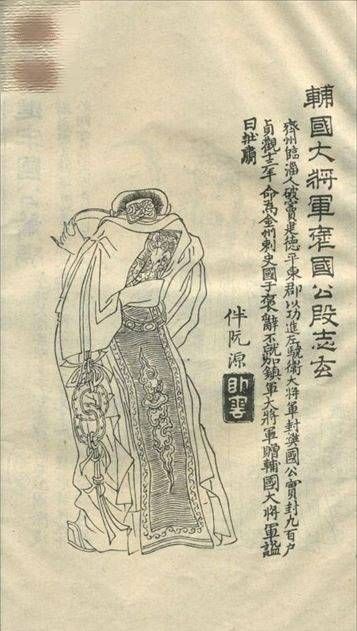 輔國大將軍褒國公段志玄
齊州臨淄人破竇建德平東郡以功進左驍衛大將軍封樊國公實封九百戶
貞觀十一年命為金州刺史國于褒辭不就加鎮軍大將軍贈輔國大將軍謚
曰壯肅
伴阮源